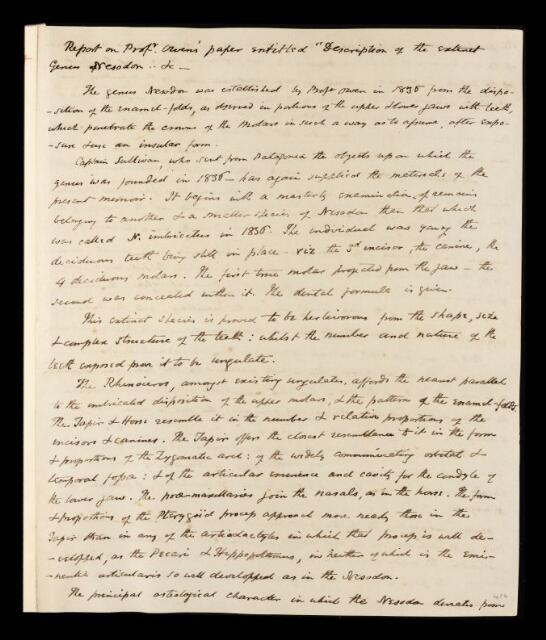 Report on Profr. Owen's paper entitled "Description of the extinct
Genus Nesodon .. &c —
The genus Nesodon was established by Profr Owen in 1836 from the dispo-
-sition of the enamel-folds, as observed in portions of the upper & lower jaws with teeth,
which penetrate the crowns of the molars in such a way as to assume, after expo-
-sure & use an insular form.
Captain Sullivan, who sent from Patagonia the objects upon which the
genus was founded in 1836 — has again supplied the materials of the
present memoir. It begins with a masterly examination of remains
belonging to another & a smaller species of Nesodon than that which
was called N. imbricatus in 1836. The individual was young the
deciduous teeth being still in place — viz the 3d incisor, the canine, &
4 deciduous molars. The first true molar projected from the jaw — the
second was concealed within it. The dental formula is given.
This extinct species is proved to be herbivorous from the shape, size
& complex structure of the teeth: whilst the number and nature of the
teeth imposed prove it to be ungulate.
The Rhinoceros, amongst existing ungulates, affords the nearest parallel
to the imbricated disposition of the upper molars, & the pattern of the enamel-folds.
The Tapir & Horse resemble it in the number & relative proportions of the
incisors & canines. The Tapir offers the closest resemblance to it in the form
& proportions of the zygomatic arch: of the widely communicating orbital &
temporal fossa: & of the articular eminence and cavity for the condyle of
the lower jaw. The præ-maxillaries join the nasals, as in the horse. The form
& proportions of the Pterygoid process approach more nearly those in the
Tapir than in any of the artiodactyles in which that process is well de-
-velopped, as the Peccari & Hippopotamus, in neither of which is the emi-
-nentia articularis so well developped as in the Nesodon.
The principal osteological character in which the Nesodon deviates from